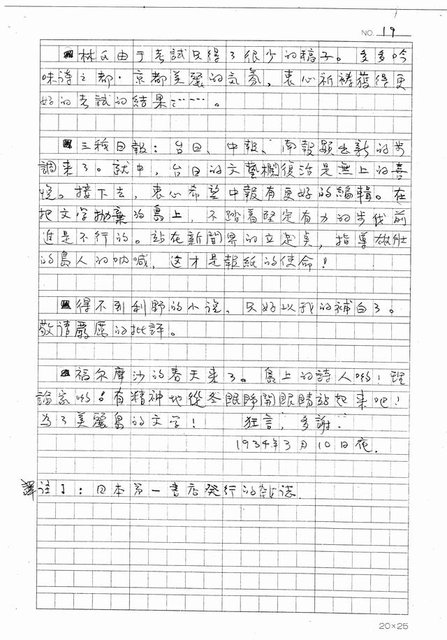 NO. 19
■林 由于考試只得了很少的稿子。多多吟
味詩之都·京都美麗的氣氛，衷心祈禱獲得更
好的考試的結果……。
■三種日報：台日、中報、南報顯出新的步
調來了。就中，台日的文藝欄復活是無上的喜
悅。接下去，衷心希望中報有更好的編輯。在
把文字拋棄的島上，不踏著堅定有力的步伐前
進是不行的。站在新聞界的立足點，指導
的島人的吶喊，這才是報紙的使命！
■得不到利野的小說，只好以我的補白了。
敬請嚴厲的批評。
■福尔摩沙的春天來了。島上的詩人喲！理
論家喲！有精神地從冬眠睜開眼睛站起來吧！
為了美麗島的文字！ 狂言，多謝。
1934年3月10日夜.
譯注1：日本第一書店發行的雜誌.
20×25